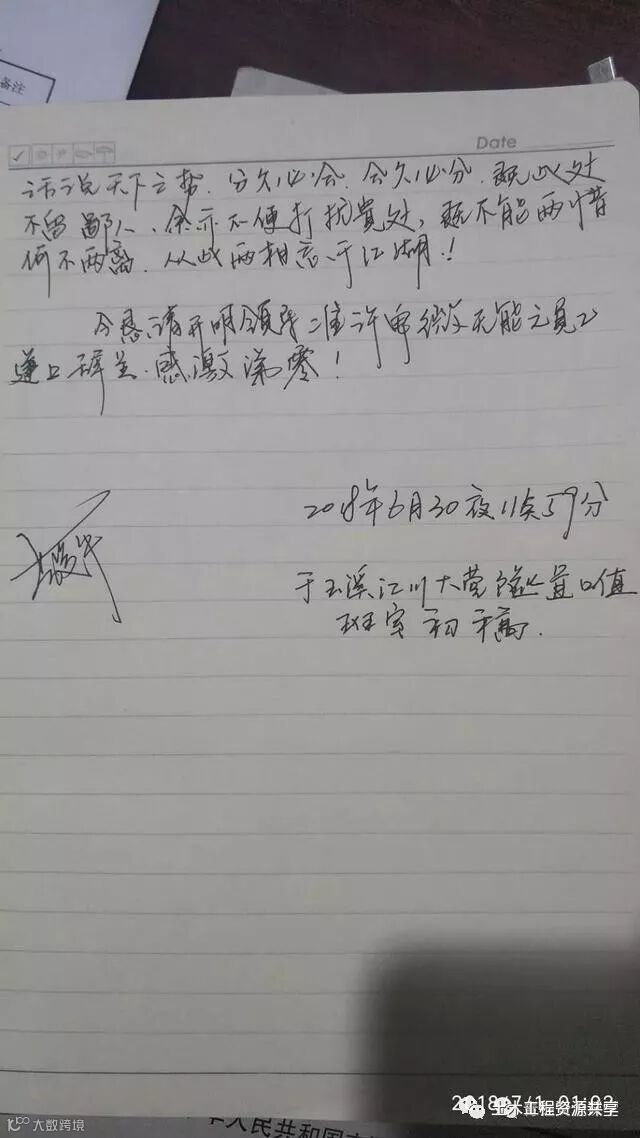 备注
Date
话说天下之势、分久必合、合久必分、既此处
不留鄙人、余亦不便打扰贵处，既不能两惜
何不两离、从此两相忘于江湖！
今恳请开明领导准许卑微无能之员工
递上辞呈、感激涕零！
2018年6月30夜11点59分
于玉溪江川大营隧道口值
班室初稿.
2018/7/1 01:02
土木工程资源共享
大数跨境
华人民共和国